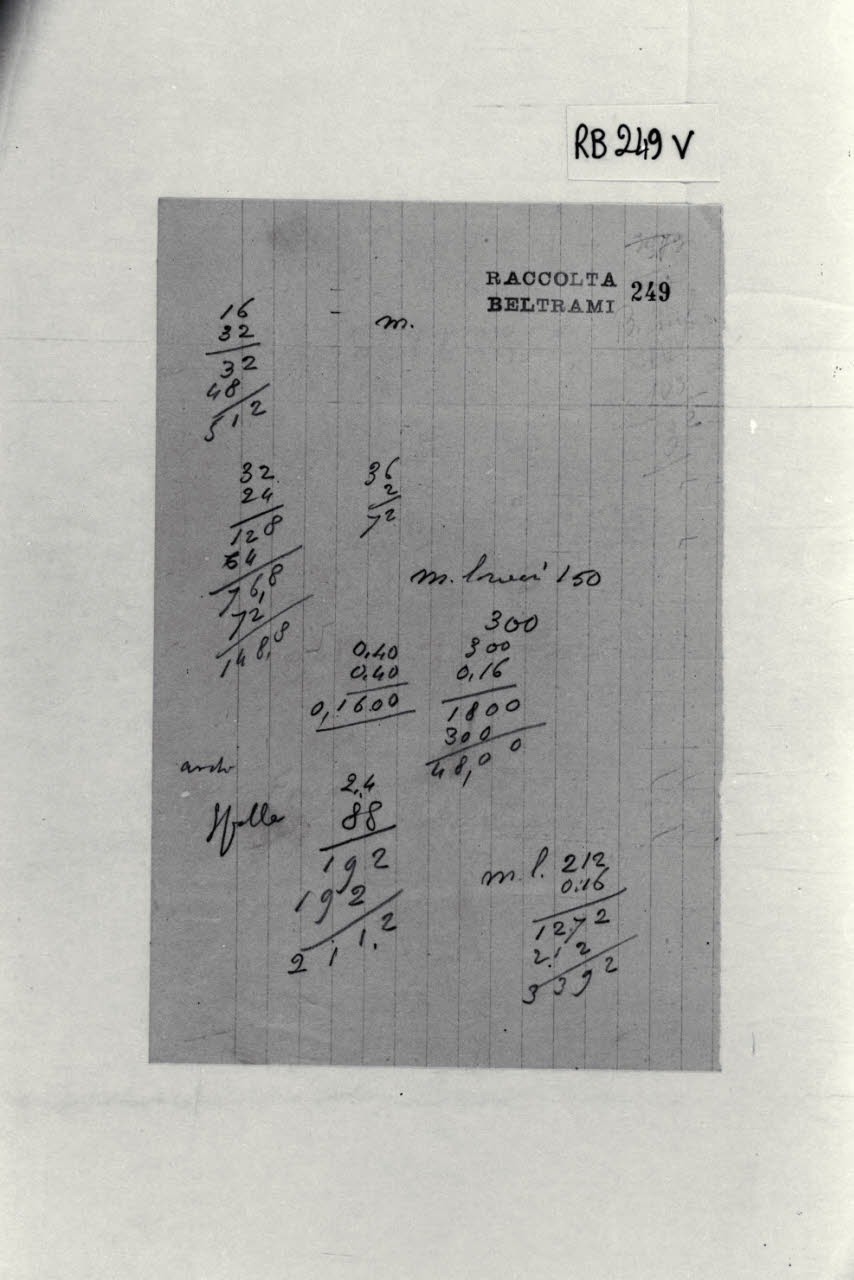 RB 249 V
RACCOLTA
BELTRAMI 249
16
32
32
48
512
m.
32
24
128
64
76,8
72
148,8
36
2
72
m. lineari 150
300
300
0,16
1800
300
48,00
0,40
0,40
0,1600
arch
Spalle
2,4
88
192
192
211,2
m. l. 212
0.16
1272
212
3392